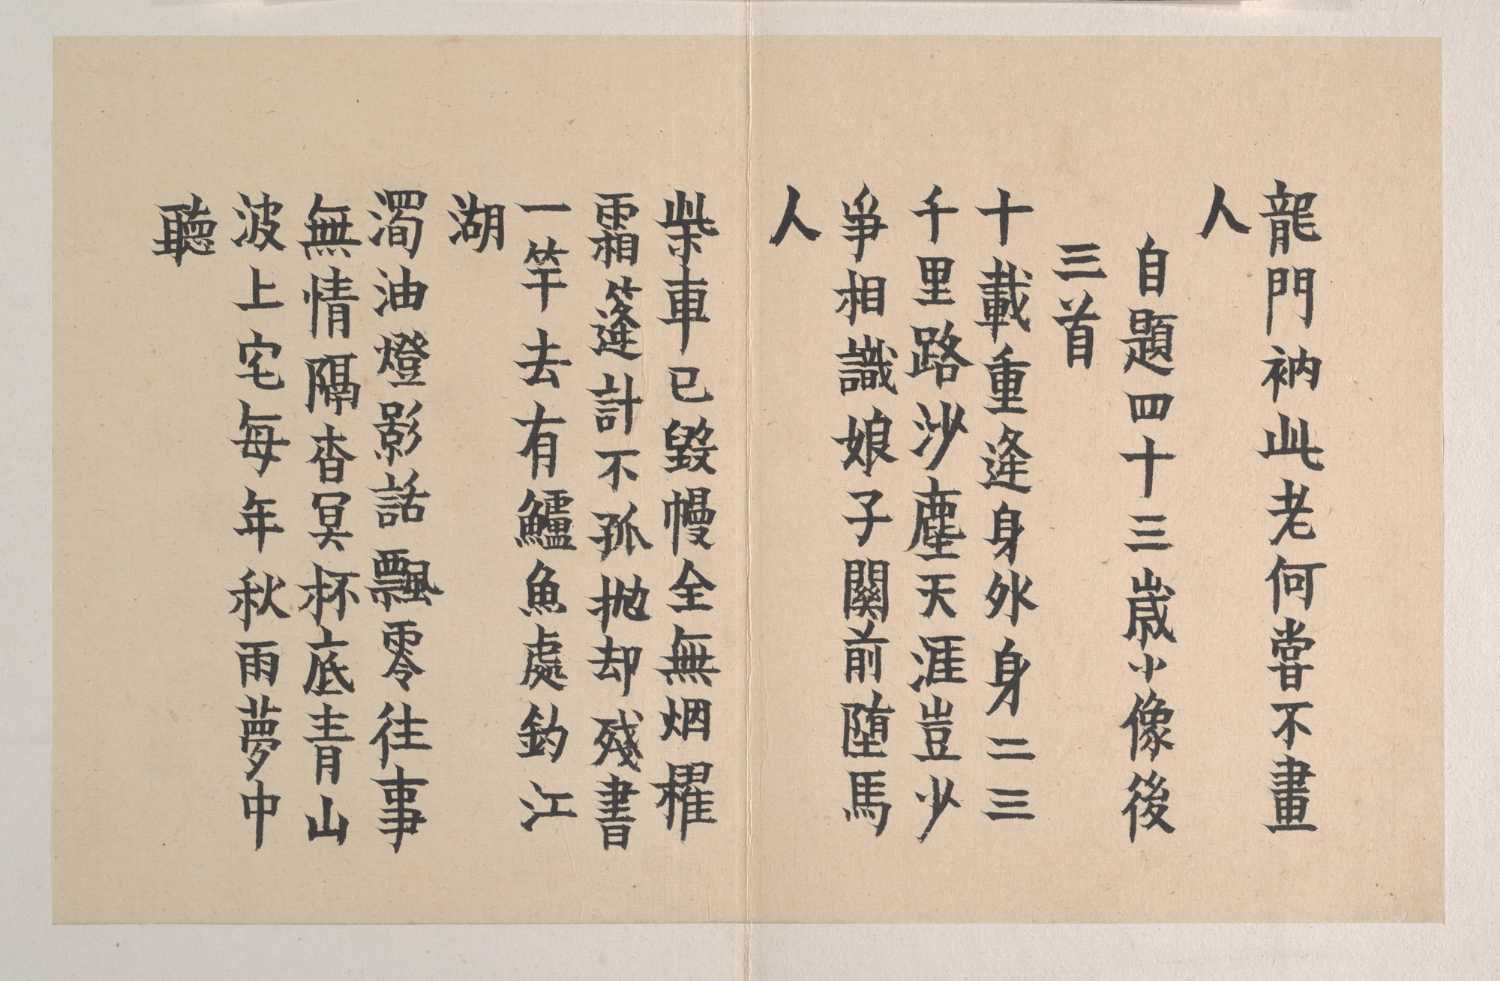 龍門衲此老何嘗不畫
人
自題四十三歲小像後
三首
十載重逢身外身二三
千里路沙塵天涯豈少
爭相識娘子關前堕馬
人
柴車已毀幔全無烟櫂
霜篷計不孤拋却殘書
一竿去有鱸魚處釣江
湖
濁油燈影話飄零往事
無情隔杳冥杯底青山
波上宅每年秋雨夢中
聽